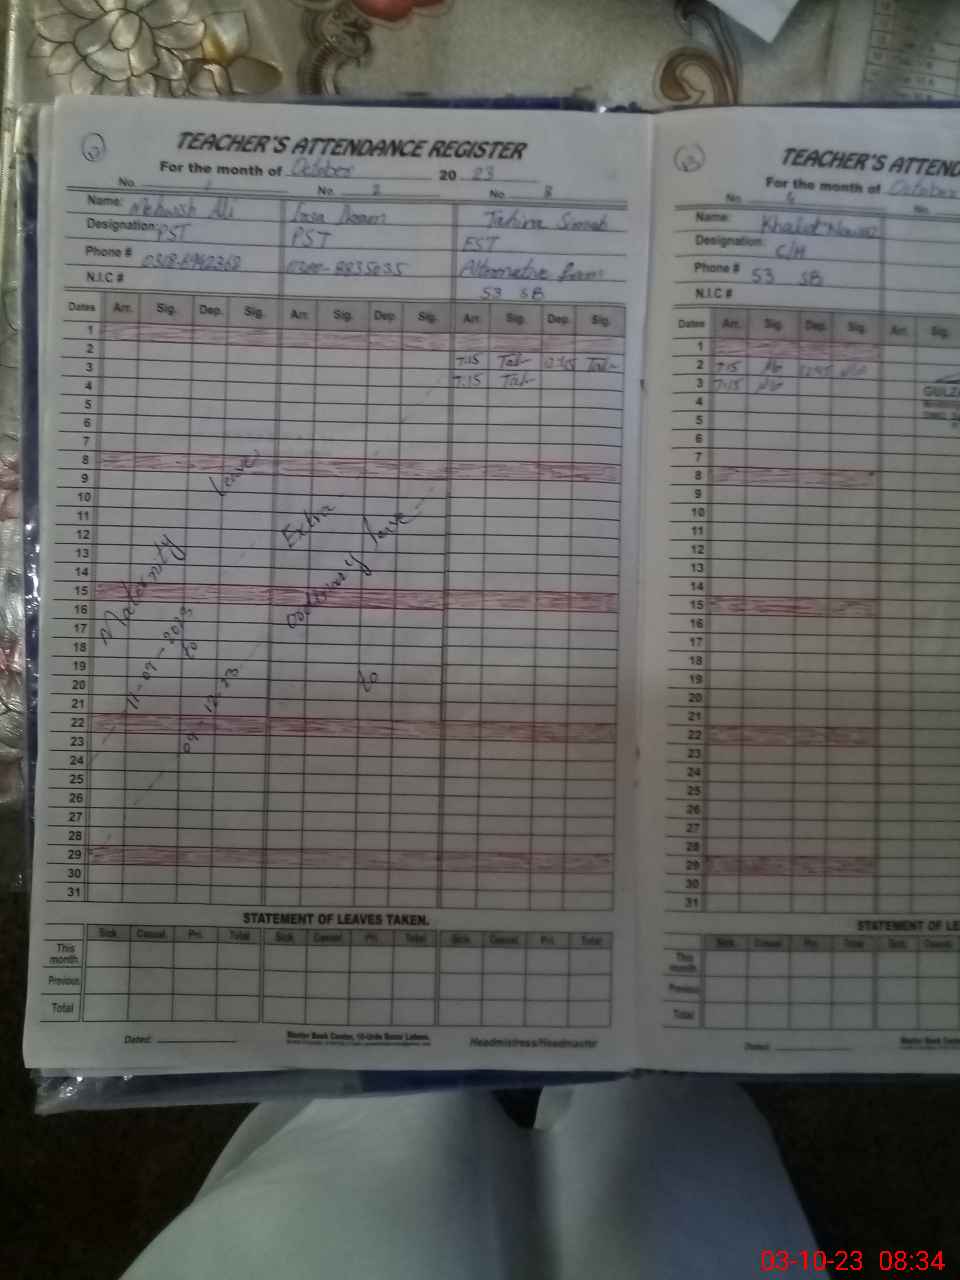 TEACHER'S ATTENDANCE REGISTER
For the month of October 2023
No. 1 No. 2 No. 3
Name: Mehwish Ali
Designation: PST PST EST
Phone # Alternative from
N.I.C # 53 SB
Dates Arr. Sig. Dep. Sig. Arr. Sig. Dep. Sig. Arr. Sig. Dep. Sig.
1
2 7:15 12:45
3 7:15
4
5
6
7
8
9
10
11
12
13
14
15
16
17
18
19
20
21
22
23
24
25
26
27
28
29
30
31
Maternity Leave
11-09-2023
to
09-12-23
Extra
ordinary leave
to
STATEMENT OF LEAVES TAKEN.
Sick. Casual. Pri. Total Sick. Casual. Pri. Total Sick. Casual. Pri. Total
This month
Previous
Total
Dated:
Headmistress/Headmaster
TEACHER'S ATTEN
For the month of October
No. 4 No.
Name: Khalid Nawaz
Designation: C/H
Phone # 53 SB
N.I.C #
Dates Arr. Sig. Dep. Sig. Arr. Sig.
1
2 7:15 12:45
3 7:15
4
5
6
7
8
9
10
11
12
13
14
15
16
17
18
19
20
21
22
23
24
25
26
27
28
29
30
31
STATEMENT OF LE
Sick. Casual. Pri. Total Sick. Casual.
This month
Previous
Total
Dated:
03-10-23 08:34